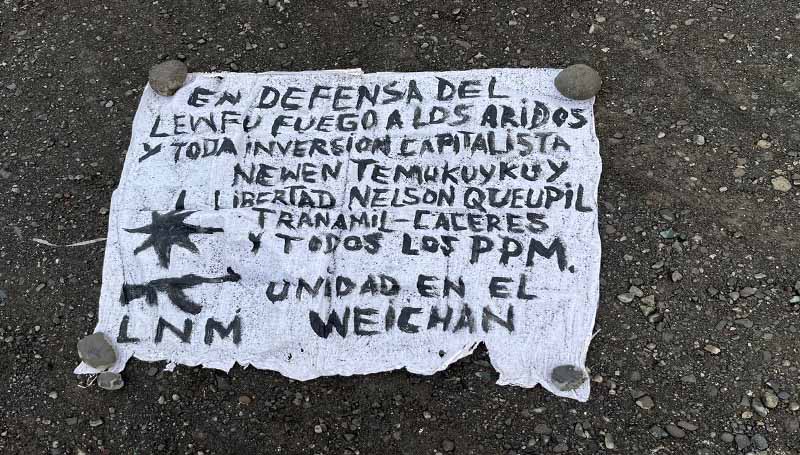 EN DEFENSA DEL
LEWFU FUEGO A LOS ARIDOS
Y TODA INVERSION CAPITALISTA
NEWEN TEMUKUYKUY
LIBERTAD NELSON QUEUPIL
TRANAMIL-CACERES
Y TODOS LOS PPM.
UNIDAD EN EL
LNM WEICHAN